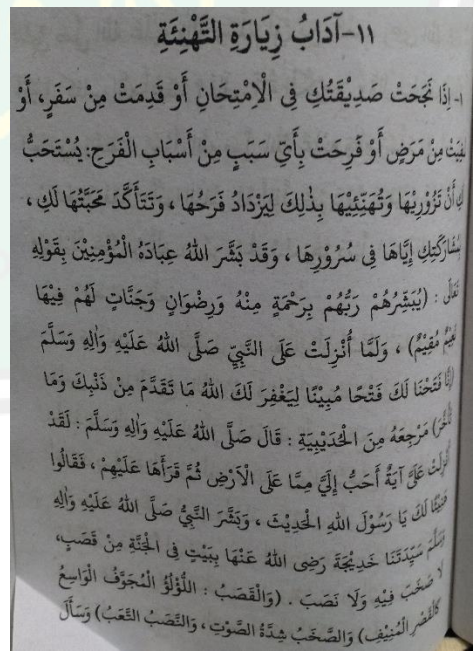 ١١-آدَابُ زِيَارَةِ التَّهْنِئَةِ
١- إِذَا نَجَحَتْ صَدِيْقَتُكِ فِى الْاِمْتِحَانِ أَوْ قَدِمَتْ مِنْ سَفَرٍ، أَوْ
مِنْ مَرَضٍ أَوْ فَرِحَتْ بِأَيِّ سَبَبٍ مِنْ أَسْبَابِ الْفَرَحِ: يُسْتَحَبُّ
أَنْ تَزُوْرِيْهَا وَتُهَنِّئِيْهَا بِذٰلِكَ لِيَزْدَادَ فَرَحُهَا، وَتَتَأَكَّدَ مَحَبَّتُهَا لَكِ،
إِيَّاهَا فِى سُرُوْرِهَا، وَقَدْ بَشَّرَ اللهُ عِبَادَهُ الْمُؤْمِنِيْنَ بِقَوْلِهِ
تَعَالَى : (يُبَشِّرُهُمْ رَبُّهُمْ بِرَحْمَةٍ مِنْهُ وَرِضْوَانٍ وَجَنَّاتٍ لَهُمْ فِيْهَا
نَعِيْمٌ مُقِيْمٌ) ، وَلَمَّا أُنْزِلَتْ عَلَى النَّبِيِّ صَلَّى اللهُ عَلَيْهِ وَاٰلِهِ وَسَلَّمَ
فَتَحْنَا لَكَ فَتْحًا مُبِيْنًا لِيَغْفِرَ لَكَ اللهُ مَا تَقَدَّمَ مِنْ ذَنْبِكَ وَمَا
تَأَخَّرَ) مَرْجِعَهُ مِنَ الْحُدَيْبِيَةِ : قَالَ صَلَّى اللهُ عَلَيْهِ وَاٰلِهِ وَسَلَّمَ : لَقَدْ
أُنْزِلَتْ عَلَيَّ آيَةٌ أَحَبُّ إِلَيَّ مِمَّا عَلَى الْأَرْضِ ثُمَّ قَرَأَهَا عَلَيْهِمْ ، فَقَالُوا
هَنِيْئًا لَكَ يَا رَسُوْلَ اللهِ الْحَدِيْثَ ، وَبَشَّرَ النَّبِيُّ صَلَّى اللهُ عَلَيْهِ وَاٰلِهِ
وَسَلَّمَ سَيِّدَتَنَا خَدِيْجَةَ رَضِىَ اللهُ عَنْهَا بِبَيْتٍ فِى الْجَنَّةِ مِنْ قَصَبٍ،
لَا صَخَبَ فِيْهِ وَلَا نَصَبَ . (وَالْقَصَبُ : اللُّؤْلُؤُ الْمُجَوَّفُ الْوَاسِعُ
كَالْقَصْرِ الْمُنِيْفِ) وَالصَّخَبُ شِدَّةُ الصَّوْتِ ، وَالنَّصَبُ التَّعَبُ) وَسَأَلَ